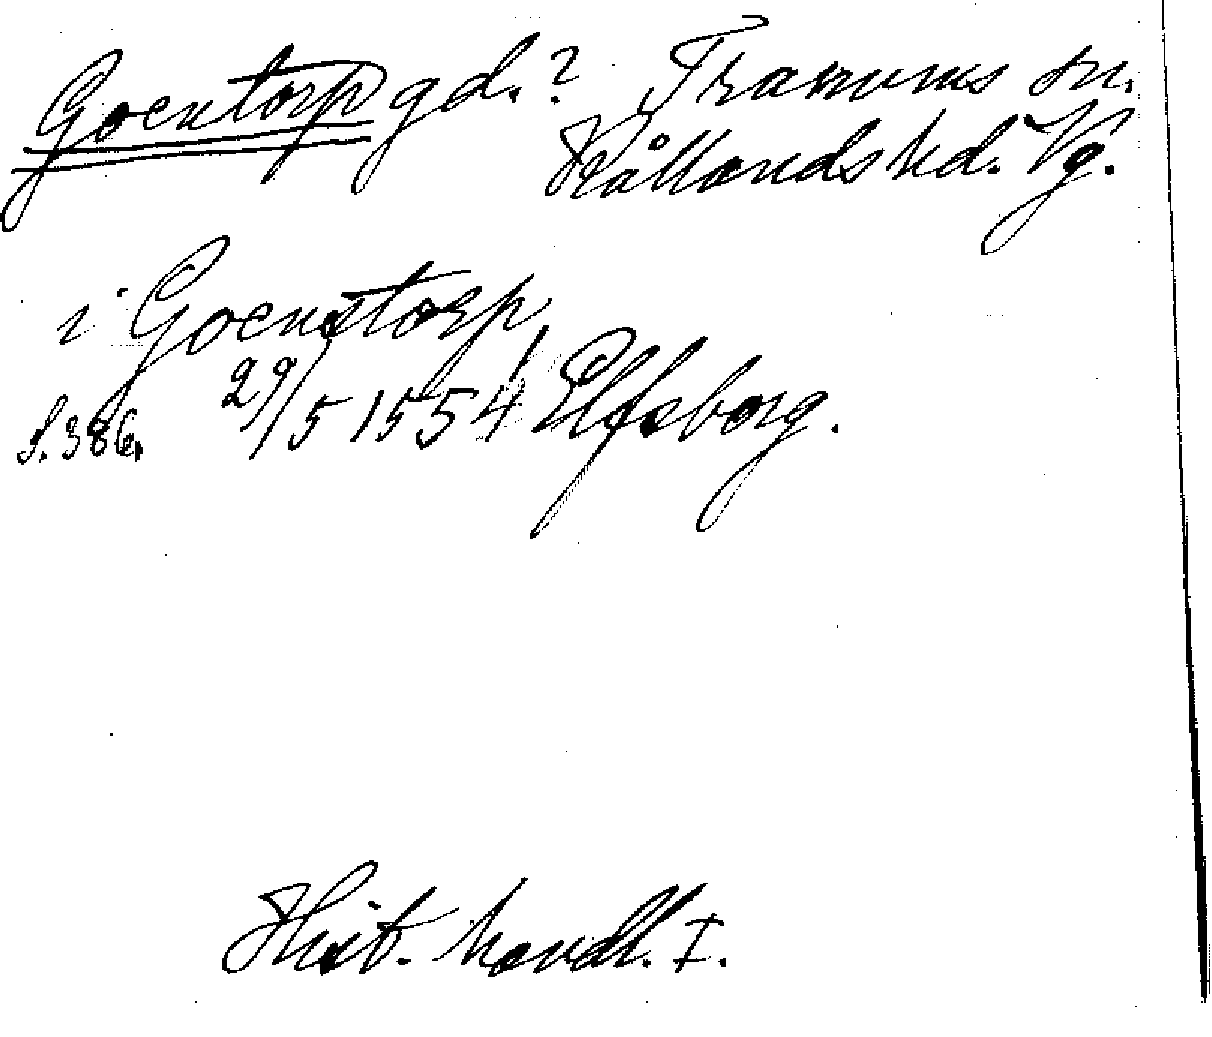 Goentorp gd.? Tranums sn.
Kållands hd. Vg.
i Goenstorp,
S. 386. 29/5 1554 Elfsborg.
Hist. handl. I.